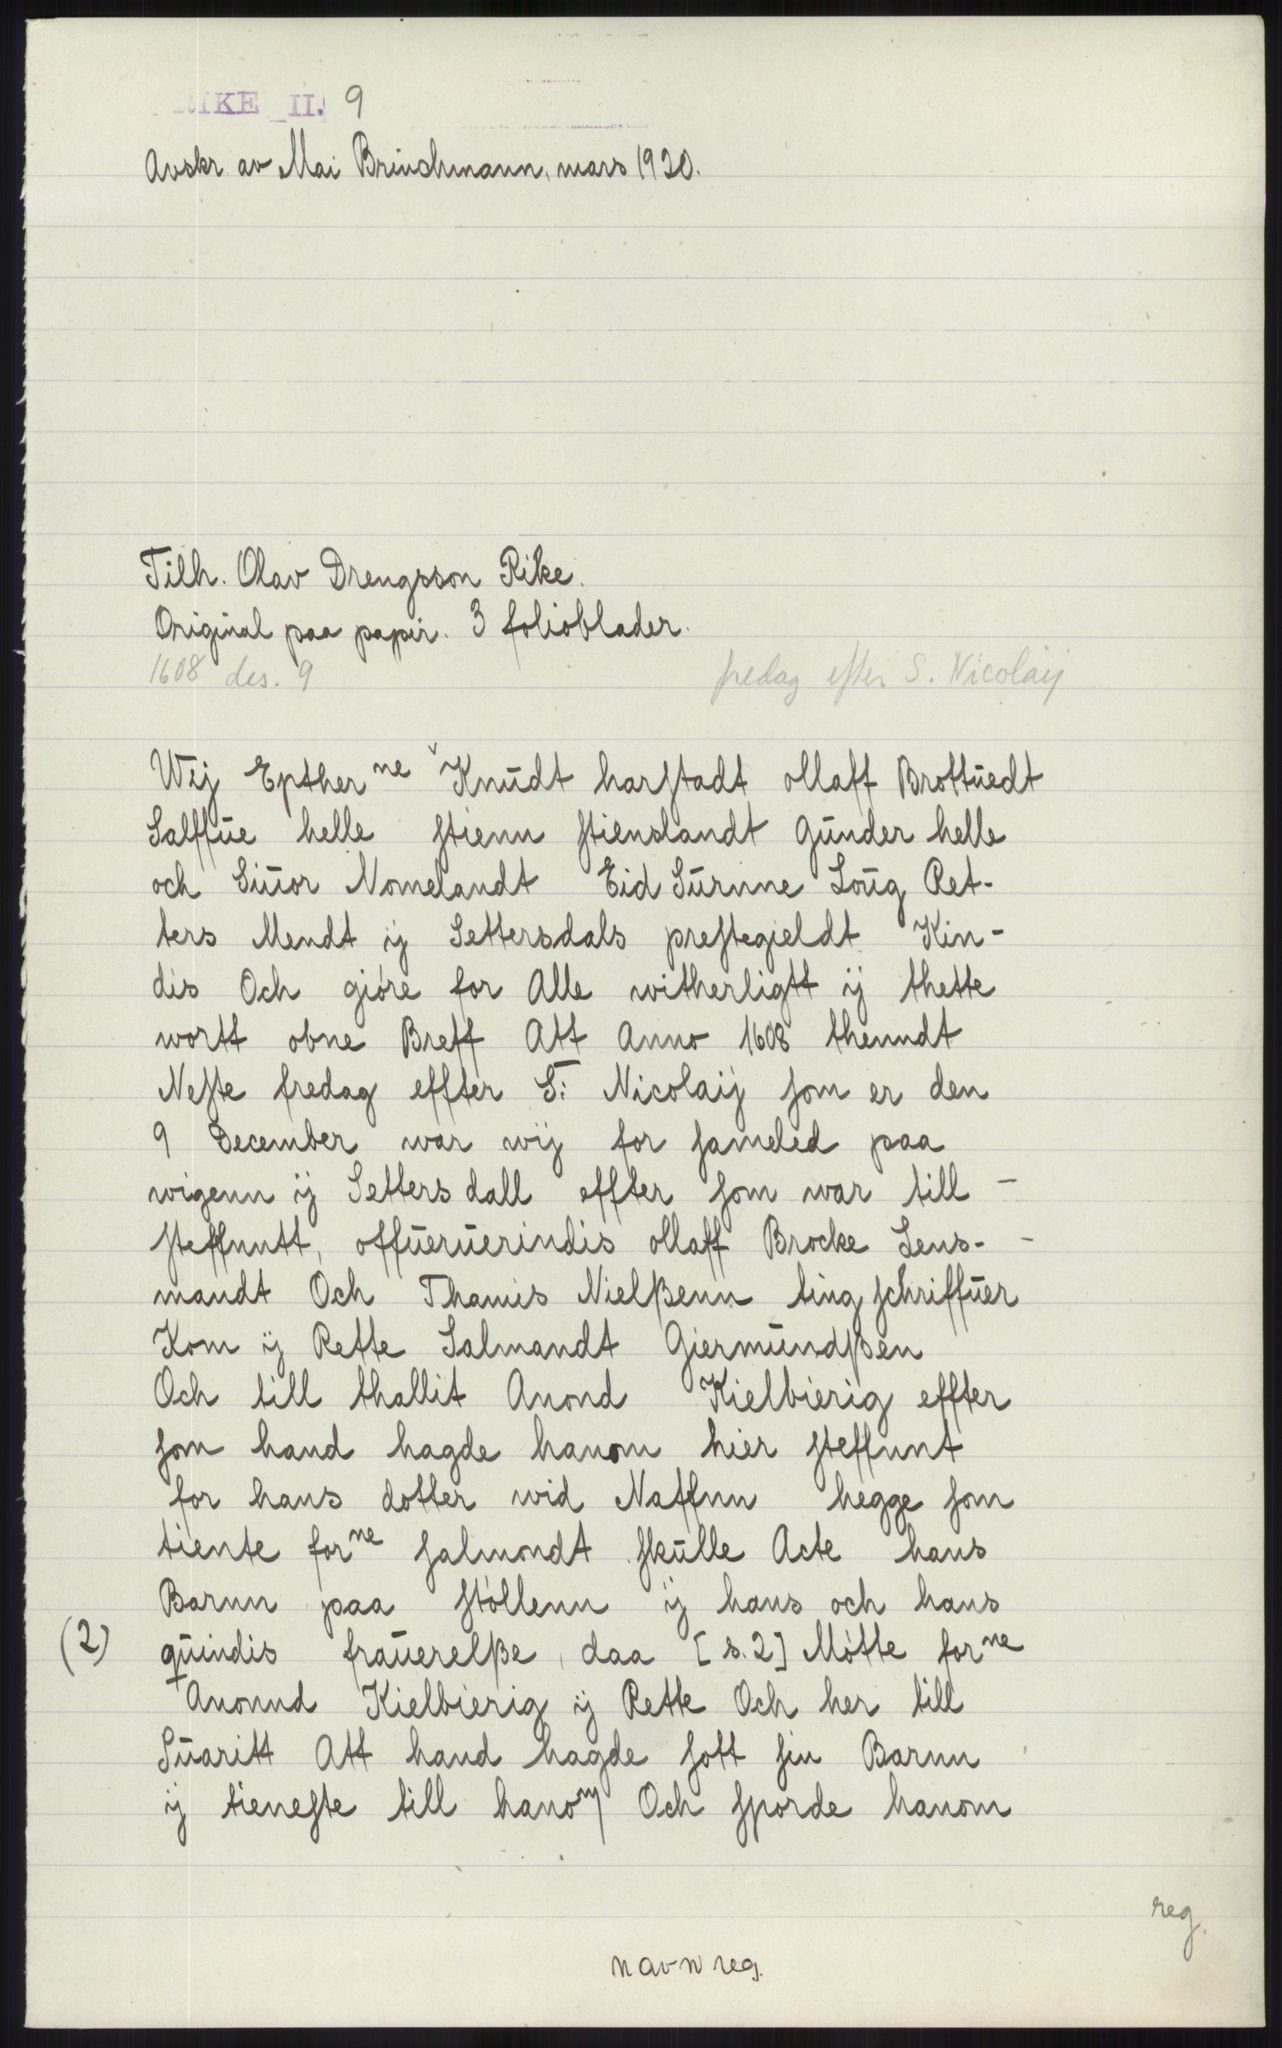 RIKE II. 9
Avskr. av Mai Brinchmann, mars 1920.
Tilh. Olav Drengsson Rike.
Original paa papir. 3 folioblader.
1608 des. 9 fredag efter S. Nicolaij
Wij Epther ne Knŭdt harstadt ollaff Brottŭedt
Salffŭe helle stienn stienslandt Gŭnder helle
och Siŭor Nomelandt Eid Sŭrnne Loŭg Ret-
ters Mendt ij Settersdals prestegieldt Kin-
dis Och gióre for Alle witherligtt ij thette
wortt obne Breff Att Anno 1608 thenndt
Neste fredag effter S: Nicolaij som er den
9 December war wij for sameled paa
wigenn ij Settersdall effter som war till -
steffnntt, offŭerŭerindis ollaff Brocke Lens-
mandt Och Thamis Nielßenn ting schriffŭer
Kom ij Rette Salmandt Giermŭndßen
Och till thallit Anond Kielbierig effter
som hand hagde hanom hier steffnnt
for hans dotter wid Naffnn hegge som
tiente for ne salmondt skŭlle Acte hans
Barnn paa stóllenn ij hans och hans
(2) qŭindis fraŭerelße, daa [s. 2] Mótte for ne
Anonnd Kielbierig ij Rette Och her till
Sŭaritt Att hand hagde sott sin Barnn
ij tieneste till hanom Och sporde hanom
reg.
navnreg.